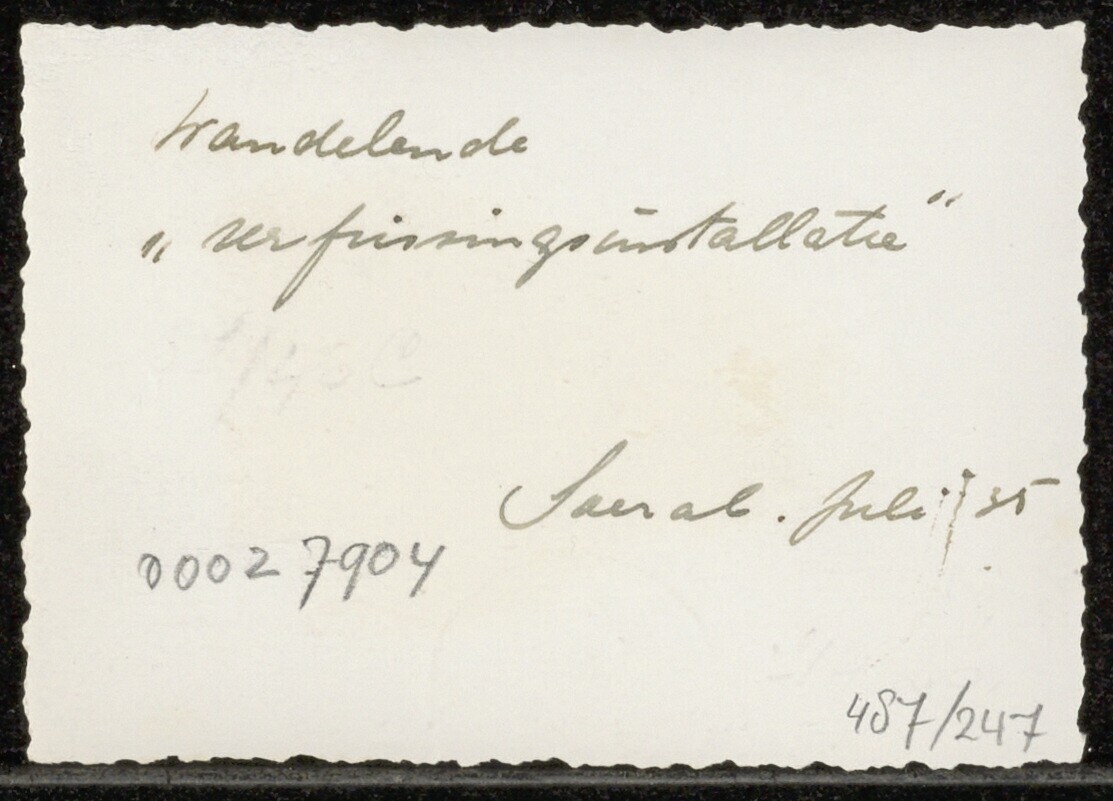 Wandelende
„ verfrissingsinstallatie "
Soerab. Juli '35
00027904
487/247